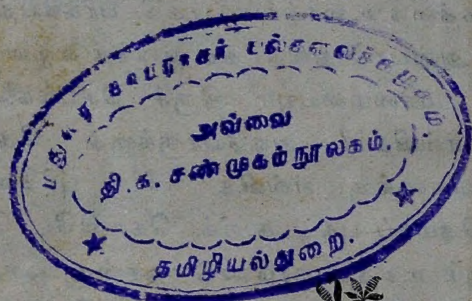 மதுரை காமராசர் பல்கலைக்கழகம்
அவ்வை
தி. க. சண்முகம் நூலகம்.
தமிழியல்துறை.